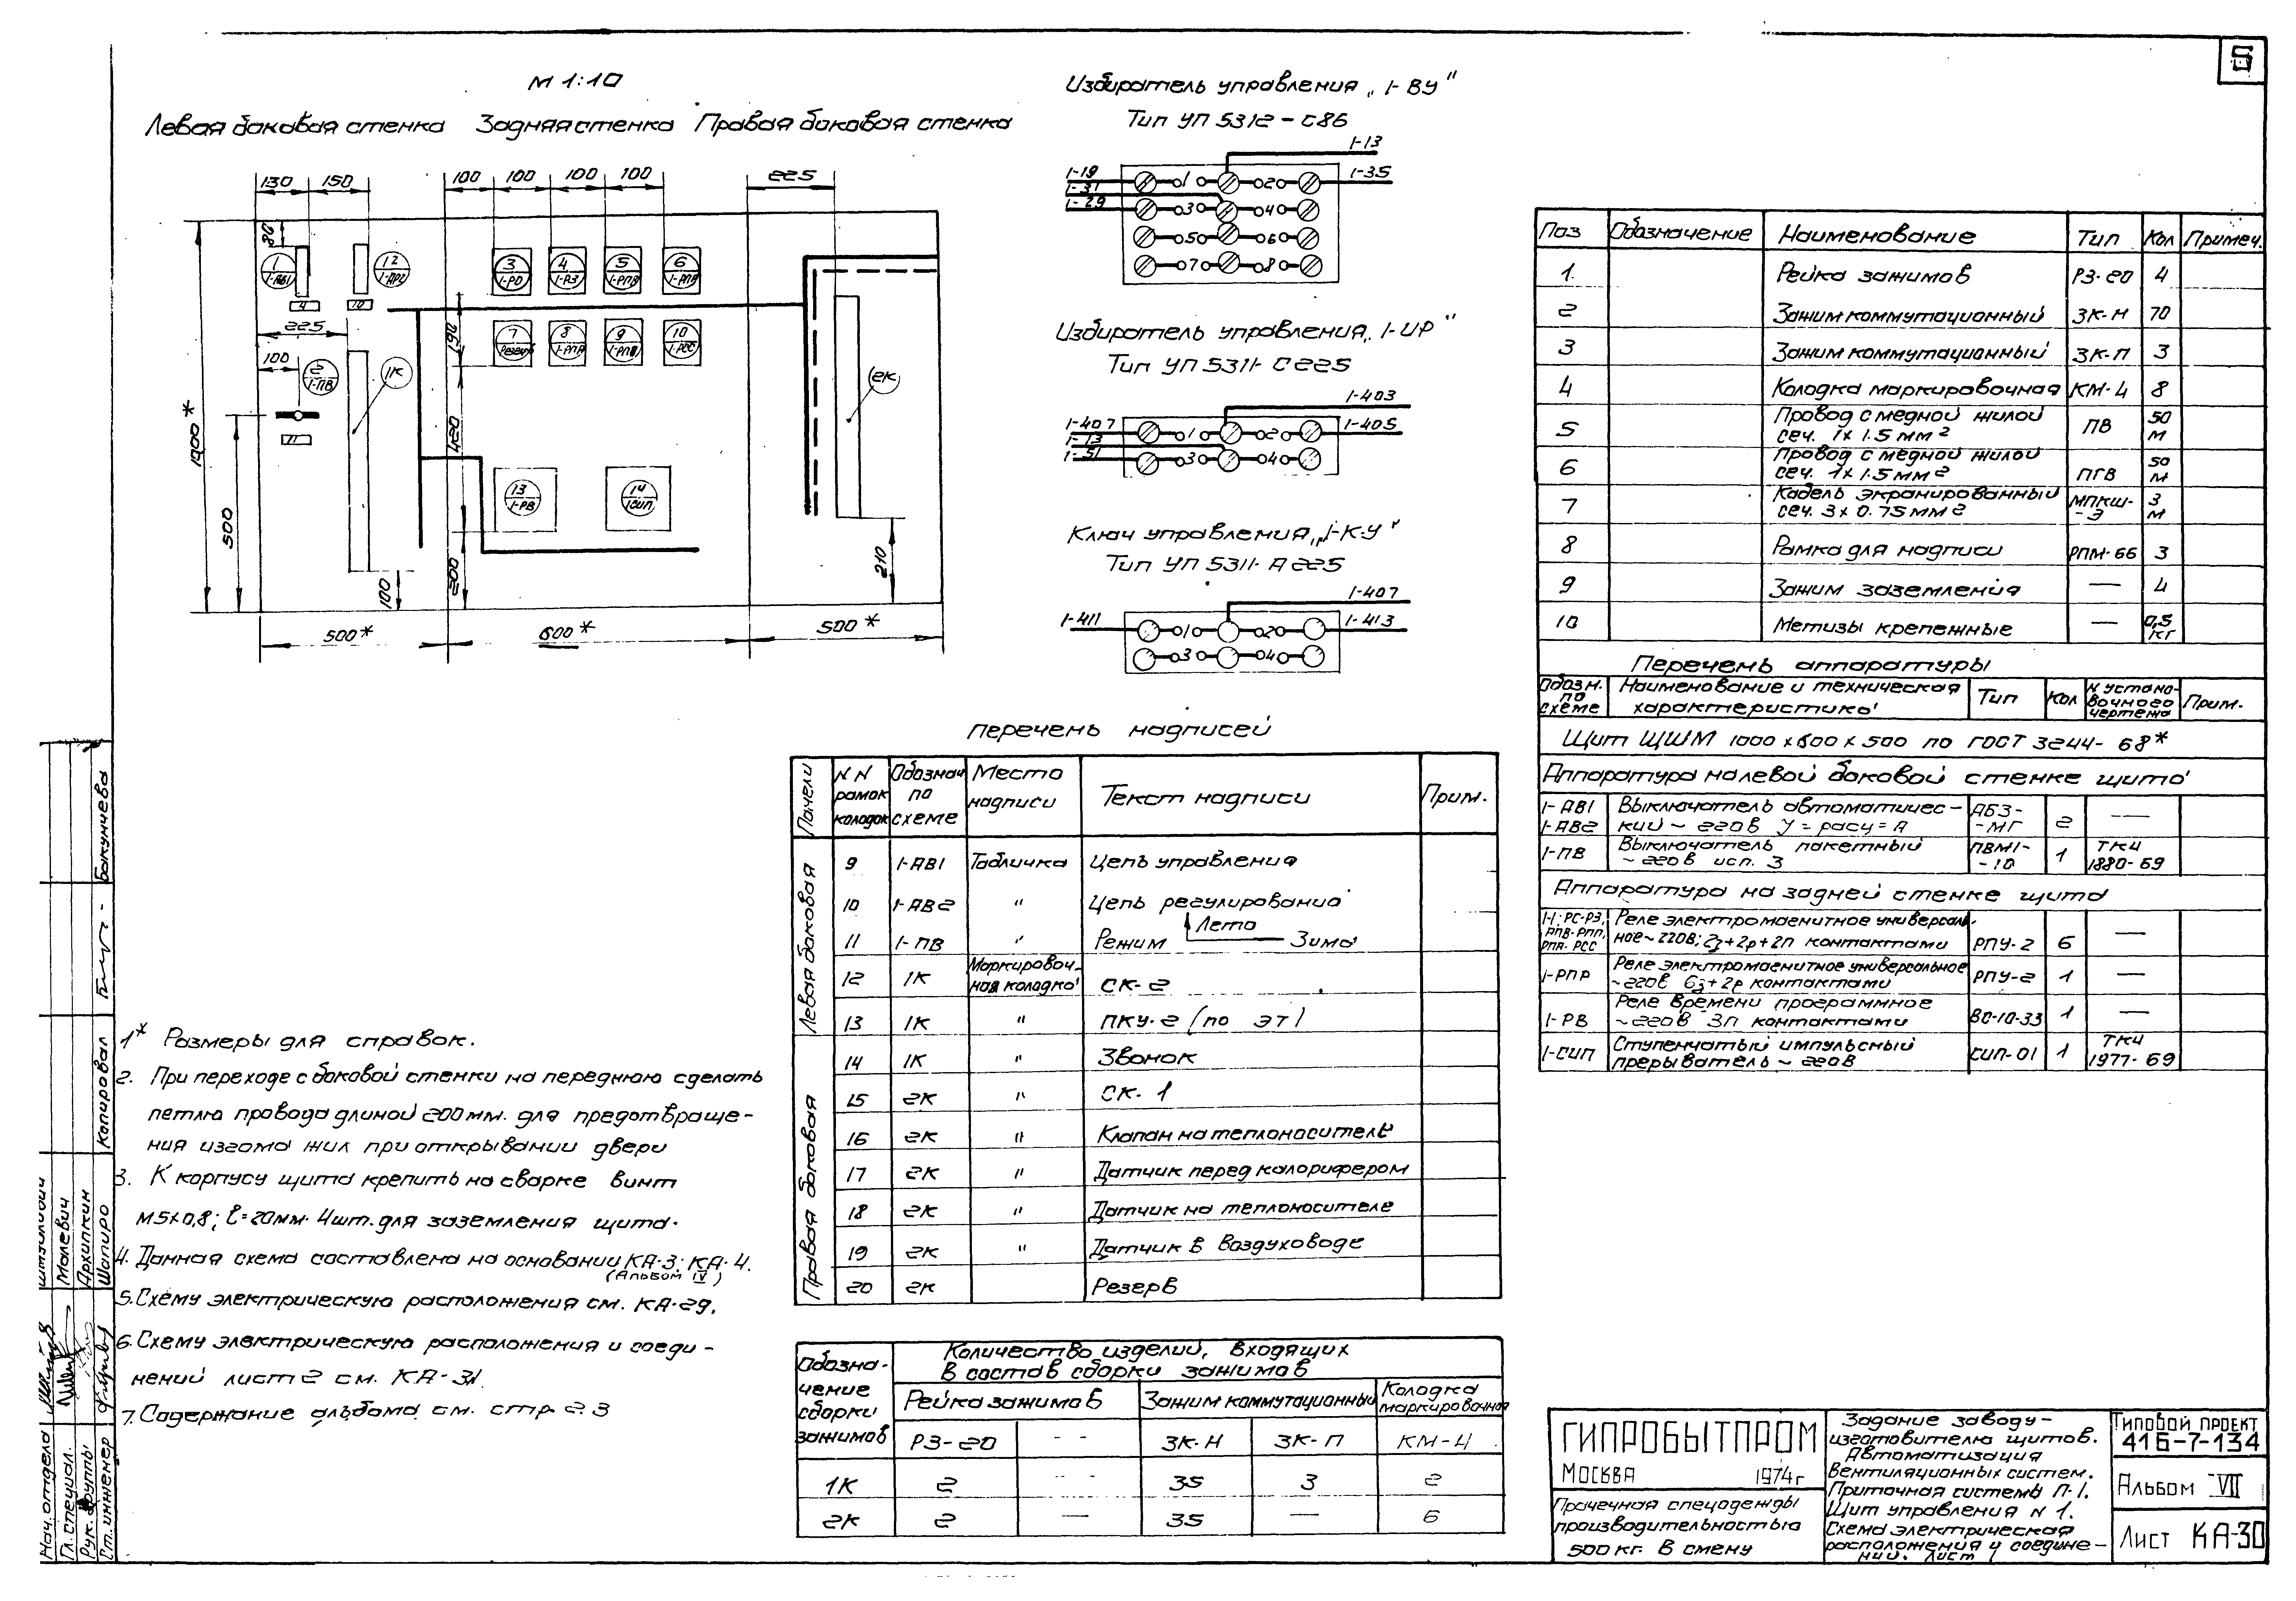 5
М 1:10
Левая боковая стенка Задняя стенка Правая боковая стенка
130 150 100 100 100 100 225
80
1 1-АВ1
12
4 10
3 1-РО
4 1-РЗ
5 1-РПВ
6
225
190
7 Резерв
8 1-РПА
9
10 1-РСС
100
2 1-ПВ
1К
2К
1000*
420
11
500
13 1-РВ
14 1СИП
100
200
210
500* 600* 500*
Избиратель управления „1-ВУ"
Тип УП 5312-С86
1-13
1-19 1-35
1-31
1-29
1 2
3 4
5 6
7 8
Избиратель управления „1-ИР"
Тип УП 5311-С225
1-403
1-407 1-405
1-13
1-51
1 2
3 4
Ключ управления „1-КУ"
Тип УП 5311-А225
1-407
1-411 1-413
1 2
3 4
Поз Обозначение Наименование Тип Кол Примеч.
1 Рейка зажимов РЗ-20 4
2 Зажим коммутационный ЗК-Н 70
3 Зажим коммутационный ЗК-П 3
4 Колодка маркировочная КМ-4 8
5 Провод с медной жилой сеч. 1х1.5 мм2 ПВ 50 м
6 Провод с медной жилой сеч. 1х1.5 мм2 ПГВ 50 м
7 Кабель экранированный сеч. 3х0.75 мм2 МПКШ--Э 3 м
8 Рамка для надписи РПМ-66 3
9 Зажим заземления — 4
10 Метизы крепежные — 0,5 кг
Перечень аппаратуры
Обозн. по схеме Наименование и техническая характеристика Тип Кол N установочного чертежа Прим.
Щит ЩШМ 1000х600х500 по ГОСТ 3244-68*
Аппаратура на левой боковой стенке щита
1-АВ1 1-АВ2 Выключатель автоматический ~ 220в У=расц=А АБ3--МГ 2 —
1-ПВ Выключатель пакетный ~220в исп. 3 ПВМ1--10 1 ТК4 1880-69
Аппаратура на задней стенке щита
РПА-РСС Реле электромагнитное универсальное ~220В; 2з+2р+2п контактами РПУ-2 6 —
1-РПР Реле электромагнитное универсальное ~220в 6з+2р контактами РПУ-2 1 —
1-РВ Реле времени программное ~220в 3п контактами ВС-10-33 1 —
1-СИП Ступенчатый импульсный прерыватель ~220в СИП-01 1 ТК4 1977-69
Перечень надписей
Панели NN рамок колодок Обознач по схеме Место надписи Текст надписи Прим.
Левая боковая
9 1-АВ1 Табличка Цепь управления
10 1-АВ2 " Цепь регулирования
11 1-ПВ " Режим Лето Зима
12 1К Маркировочная колодка СК-2
13 1К " ПКУ-2 (по ЭТ)
14 1К " Звонок
Правая боковая
15 2К " СК-1
16 2К " Клапан на теплоносителе
17 2К " Датчик перед калорифером
18 2К " Датчик на теплоносителе
19 2К " Датчик в воздуховоде
20 2К Резерв
1* Размеры для справок.
2. При переходе с боковой стенки на переднюю сделать
петлю провода длиной 200мм. для предотвраще-
ния излома жил при открывании двери
3. К корпусу щита крепить на сварке винт
М5х0,8; ℓ=20мм. 4шт. для заземления щита.
4. Данная схема составлена на основании КА-3; КА-4.
(Альбом IV)
5. Схему электрическую расположения см. КА-29.
6. Схему электрическую расположения и соеди-
нений лист 2 см. КА-31.
7. Содержание альбома см. стр. 2.3
Обозначение сборки зажимов Количество изделий, входящих в состав сборки зажимов
Рейка зажимов Зажим коммутационный Колодка маркировочная
РЗ-20 -- ЗК-Н ЗК-П КМ-4
1К 2 -- 35 3 2
2К 2 — 35 — 6
ГИПРОБЫТПРОМ
Москва 1974г
Прачечная спецодежды
производительностью
500 кг. в смену
Задание заводу-
изготовителю щитов.
Автоматизация
вентиляционных систем.
Приточная система П-1.
Щит управления N 1.
Схема электрическая
расположения и соедине-
ний. Лист 1
Типовой проект
416-7-134
Альбом VII
Лист КА-30
Нач. отдела
Гл. специал. Малевич
Рук. группы Архипкин
Ст. инженер Шапиро
Копировал Бакунчева